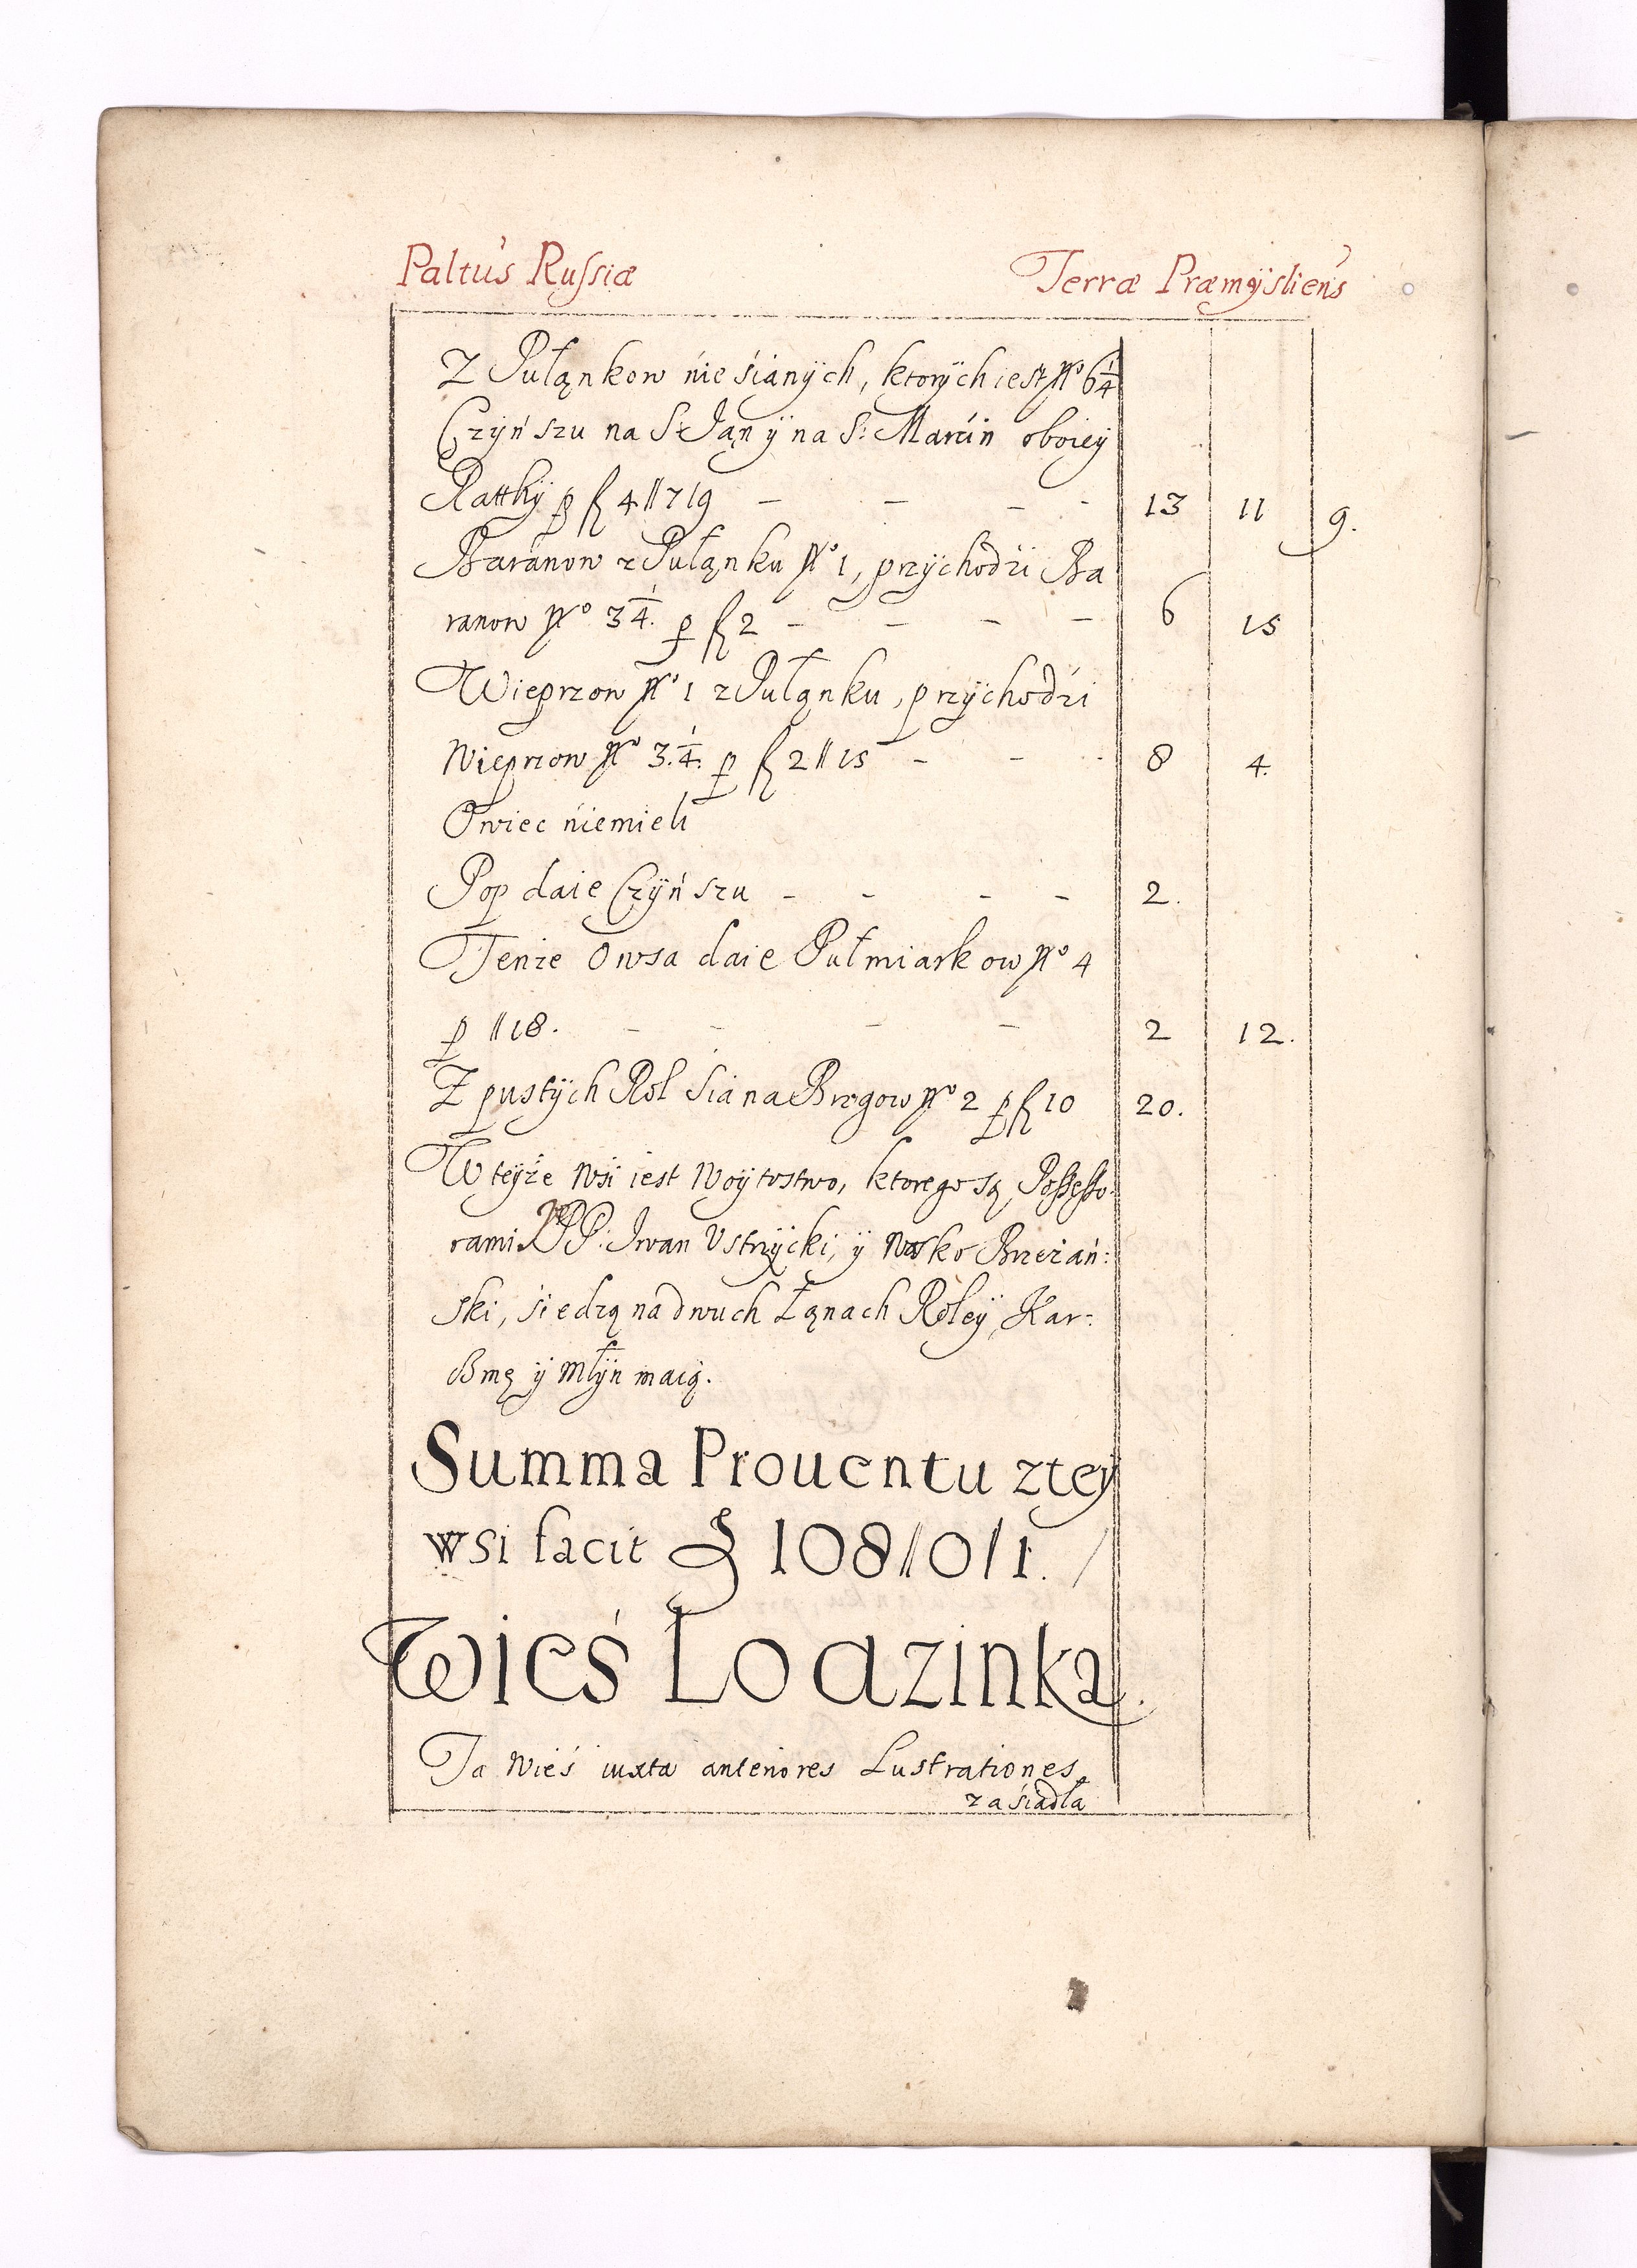 Paltus Russiæ Terræ Præmÿsliens
Z Pułąnkow nie sianÿch, ktorÿch iest No 6 1/4
Czÿńszu na S. Ją̨n ÿ na S: Marcin oboieÿ
Ratthÿ p fl 4//7/9 – – – – 13 11 9.
Baranow z Pułąnku No 1, przÿchodźi Ba
ranow No 3 1/4. p fl 2 – – – – 6 15
Wieprzow No 1 z Pułąnku, przÿchodźi
Wieprzow No 3. 1/4. p fl 2//15 – – – 8 4.
Owiec niemieli
Pop daie Czÿńszu – – – – 2.
Tenże Owsa daie Pułmiarkow No 4
p //18. – – – – 2 12.
Z pustÿch Rol Siana Brogow No 2 p fl 10 20.
W teÿże Wsi iest Woÿtostwo, ktorego są Possesso:
rami PP: Iwan Ustrzÿcki, ÿ Wasko Brzeżań:
ski, siedzą na dwuch Łąnach Roleÿ, Kar:
cżmę ÿ Młÿn maią.
Summa Prouentu ztey
wsi facit fl 108//0/1.
Wieś Lodzinka.
Ta Wieś iuxta anteriores Lustrationes
zasiadła